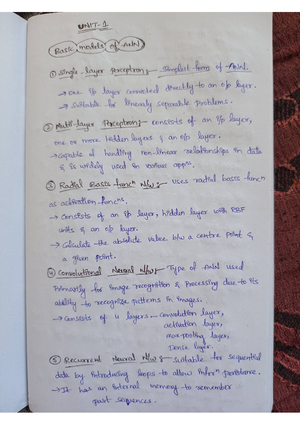 UNIT-1
Basic models of ANN
① Single layer Perceptron :- Simplest form of ANN.
→ One i/p layer connected directly to an o/p layer.
→ Suitable for linearly separable problems.
② Multi-layer Perceptron :- consists of an i/p layer,
one or more hidden layers & an o/p layer.
→ capable of handling non-linear relationships in data
& is widely used in various appns.
③ Radial Basis func^n N/w :- uses radial basis func^n
as activation func^ns.
→ Consists of an i/p layer, hidden layer with RBF
units & an o/p layer.
→ Calculate the absolute value b/w a centre point &
a given point.
④ Convolutional Neural N/w :- Type of ANN used
Primarily for image recognition & processing due to its
ability to recognize patterns in images.
→ Consists of 4 layers - Convolution layer,
activation layer,
max-pooling layer,
Dense layer.
⑤ Recurrent Neural N/w :- Suitable for sequential
data by introducing loops to allow infor^n persistane.
→ It has an internal memory to remember
past sequences.